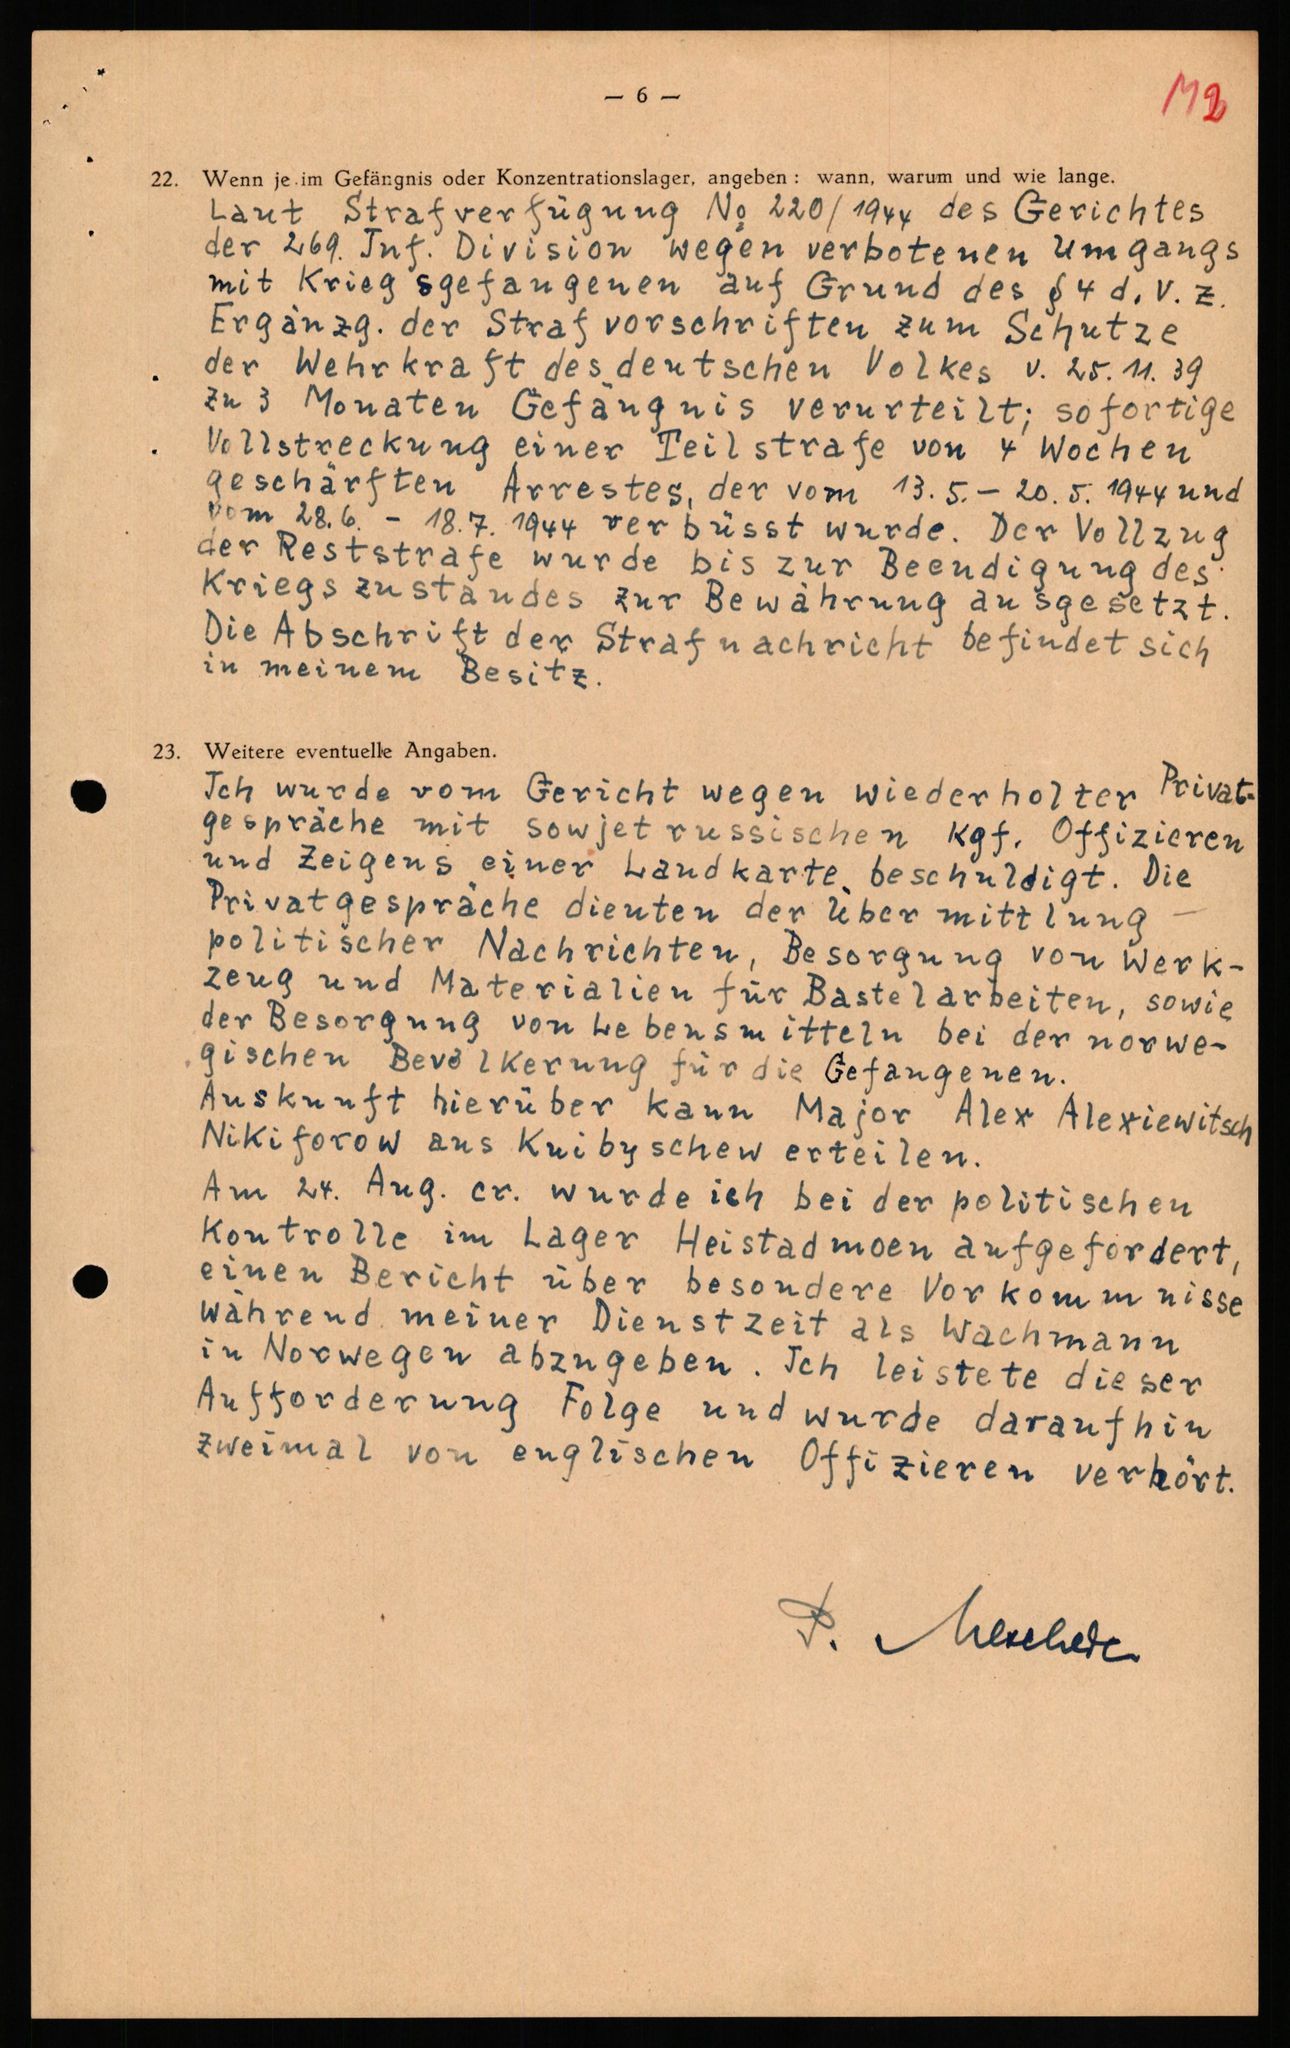 — 6 —
22. Wenn je im Gefängnis oder Konzentrationslager, angeben: wann, warum und wie lange.
Laut Strafverfügung No 220/1944 des Gerichtes
der 269. Inf. Division wegen verbotenen Umgangs
mit Kriegsgefangenen auf Grund des § 4 d. V. z.
Ergänzg. der Strafvorschriften zum Schutze
der Wehrkraft des deutschen Volkes v. 25. 11. 39
zu 3 Monaten Gefängnis verurteilt; sofortige
Vollstreckung einer Teilstrafe von 4 Wochen
geschärften Arrestes, der vom 13. 5. – 20. 5. 1944 und
vom 28. 6. – 18. 7. 1944 verbüsst wurde. Der Vollzug
der Reststrafe wurde bis zur Beendigung des
Kriegszustandes zur Bewährung ausgesetzt.
Die Abschrift der Strafnachricht befindet sich
in meinem Besitz.
23. Weitere eventuelle Angaben.
Ich wurde vom Gericht wegen wiederholter Privat-
gespräche mit sowjetrussischen Kgf. Offizieren
und Zeigens einer Landkarte beschuldigt. Die
Privatgespräche dienten der Übermittlung
politischer Nachrichten, Besorgung von Werk-
zeug und Materialien für Bastelarbeiten, sowie
der Besorgung von Lebensmitteln bei der norwe-
gischen Bevölkerung für die Gefangenen.
Auskunft hierüber kann Major Alex Alexiewitsch
Nikiforow aus Kuibyschew erteilen.
Am 24. Aug. cr. wurde ich bei der politischen
Kontrolle im Lager Heistadmoen aufgefordert,
einen Bericht über besondere Vorkommnisse
während meiner Dienstzeit als Wachmann
in Norwegen abzugeben. Ich leistete dieser
Aufforderung Folge und wurde daraufhin
zweimal von englischen Offizieren verhört.
P. Meschede